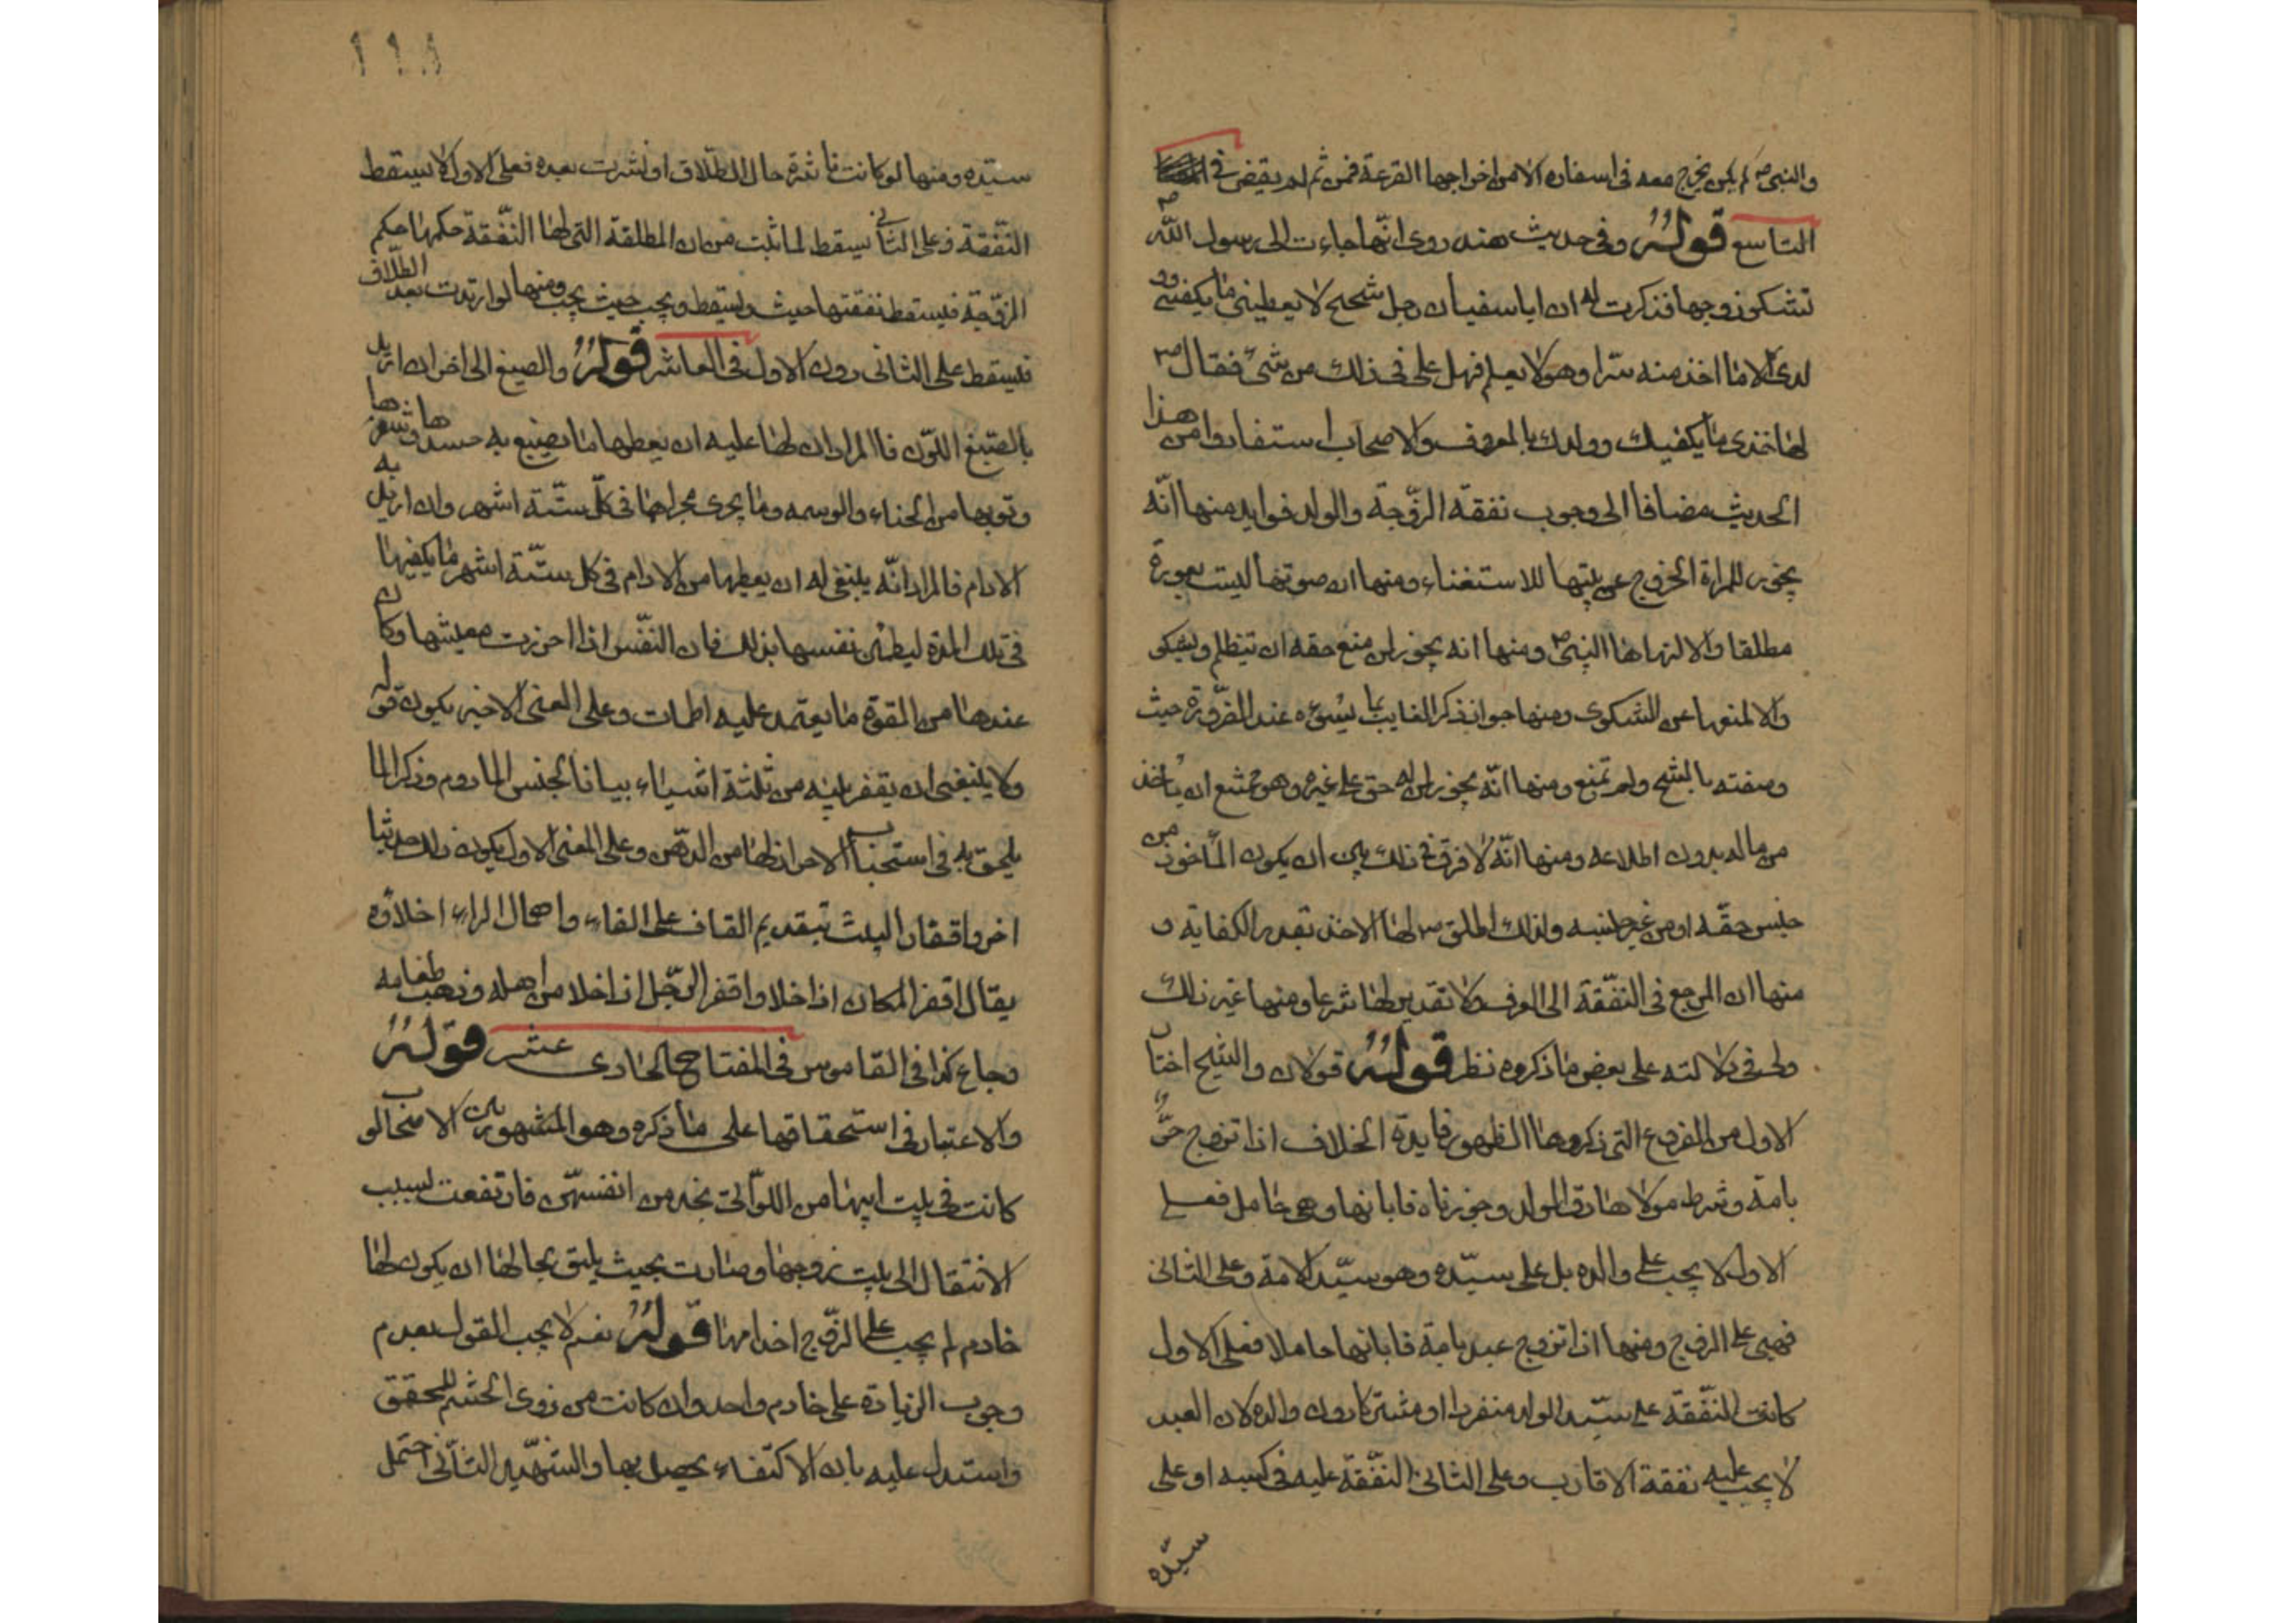 والنبي ص لم يكن يخرج معه في اسفاره الا من اخراجها القرعة فمن ثم لم يقض في
التاسع قوله وفي حديث هند روى انها جاءت الى رسول الله ص
تشكو زوجها فذكرت له ان ابا سفيان رجل شحيح لا يعطيني ما يكفيني وو
لدى الا ما اخذ منه سرا وهو لا يعلم فهل على في ذلك من شئ فقال ص
لها خذى ما يكفيك وولدك بالمعروف والاصحاب استفادوا من هذا
الحديث مضافا الى وجوب نفقة الزوجة والولد فوايد منها انه
يجوز للمراة الخروج عن بيتها للاستغناء ومنها ان صوتها ليست بعورة
مطلقا والا لنهاها النبي ص ومنها انه يجوز لمن منع حقه ان يتظلم ويشكى
والا لمنعها عن الشكوى ومنها جواز ذكر الغايب بما يسوءه عند الضرورة حيث
وصفته بالشح ولم تمنع ومنها انه يجوز لمن له حق على غيره وهو ممتنع ان ياخذ
من ماله بدون اطلاعه ومنها انه لا فرق في ذلك بين ان يكون الماخوذ من
جنس حقه او من غير جنسه ولذلك اطلق ص لها الاخذ بقدر الكفاية و
منها ان المرجع في النفقة الى العرف ولا تقدير لها شرعا ومنها غير ذلك
ولى في دلالته على بعض ما ذكروه نظر قوله قولان والشيخ اختار
الاول من الفروع التى ذكروها لظهور فايدة الخلاف اذا تزوج حر
بامة وشرط مولاها رق الولد وجوزناه فابانها وهى حامل فعلى
الاول لا يجب على والده بل على سيده وهو سيد الامة وعلى الثانى
فهى على الزوج ومنها اذا تزوج عبد بامة فابانها حاملا فعلى الاول
كانت النفقة على سيد الولد منفردا او مشتركا دون والده لان العبد
لا يجب عليه نفقة الاقارب وعلى الثانى النفقة عليه في كسبه او على
سيده
١١٨
سيده ومنها لو كانت ناشزة حال الطلاق او نشزت بعده فعلى الاول لا يسقط
النفقة وعلى الثاني يسقط لما ثبت من ان المطلقة التى لها النفقة حكمها حكم
الزوجة فيسقط نفقتها حيث يسقط ويجب حيث يجب ومنها لو ارتدت بعد الطلاق
فيسقط على الثانى دون الاول في العاشر قوله والصبغ الى اخر ان اريد
بالصبغ اللون فالمراد ان لها عليه ان يعطيها ما يصبغ به جسدها وشعرها
وثوبها من الحناء والوسمه وما يجرى مجراهما في كل ستة اشهر وان اريد به
الادام فالمراد انه ينبغى له ان يعطيها من الادام في كل ستة اشهر ما يكفيها
في تلك المدة ليطمئن نفسها بذلك فان النفس اذا احرزت معيشتها وكان
عندها من القوة ما يعتمد عليه اطمات وعلى المعنى الاخير يكون قوله
ولا ينبغى ان يقفر بيته من ثلثة اشياء بيانا لجنس المادوم وذكر الما
يلحق به في استحباب الاحراز لها من الدهن وعلى المعنى الاول يكون ذلك حديثا
اخر واقفار البيت بتقديم القاف على الفاء واهمال الراء اخلاؤه
يقال اقفر المكان اذا خلا واقفر الرجل اذا خلا من اهله وذهب طعامه
وجاع كذا في القاموس في المفتاح الحادى عشر قوله
والاعتبار في استحقاقها على ما ذكره وهو المشهور بين الاصحاب لو
كانت في بيت ابيها من اللواتى يخدمن انفسهن فارتفعت لسبب
الانتقال الى بيت زوجها وصارت بحيث يليق بحالها ان يكون لها
خادم لم يجب على الزوج اخدامها قوله نعم لا يجب القول بعدم
وجوب الزيادة على خادم واحد وان كانت من ذوى الحشم للمحقق
واستدل عليه بان الاكتفاء يحصل بها والشهيد الثانى احتمل